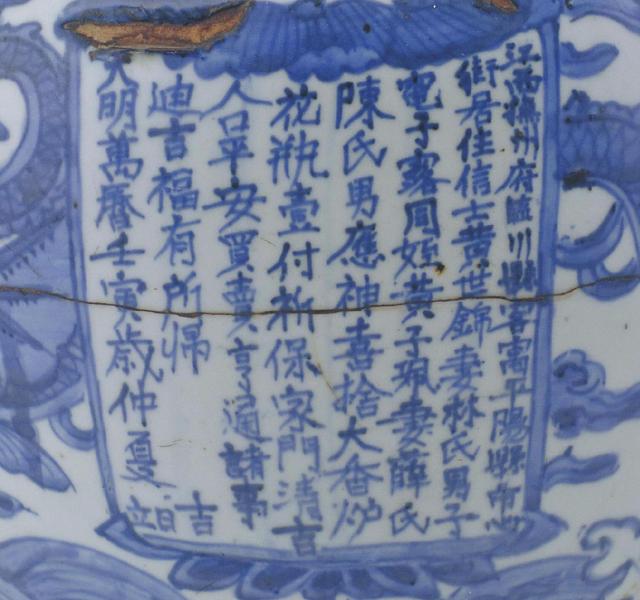 江西撫州府臨川縣客寓平陽縣市心
街居住信士黃世錦妻林氏男子
電子露同姪黃子珮妻薛氏
陳氏男應神喜捨大香炉
花瓶壹付祈保家門清吉
人口平安買賣亨通諸事
迪吉福有所歸 吉
大明萬曆壬寅歲仲夏 日立